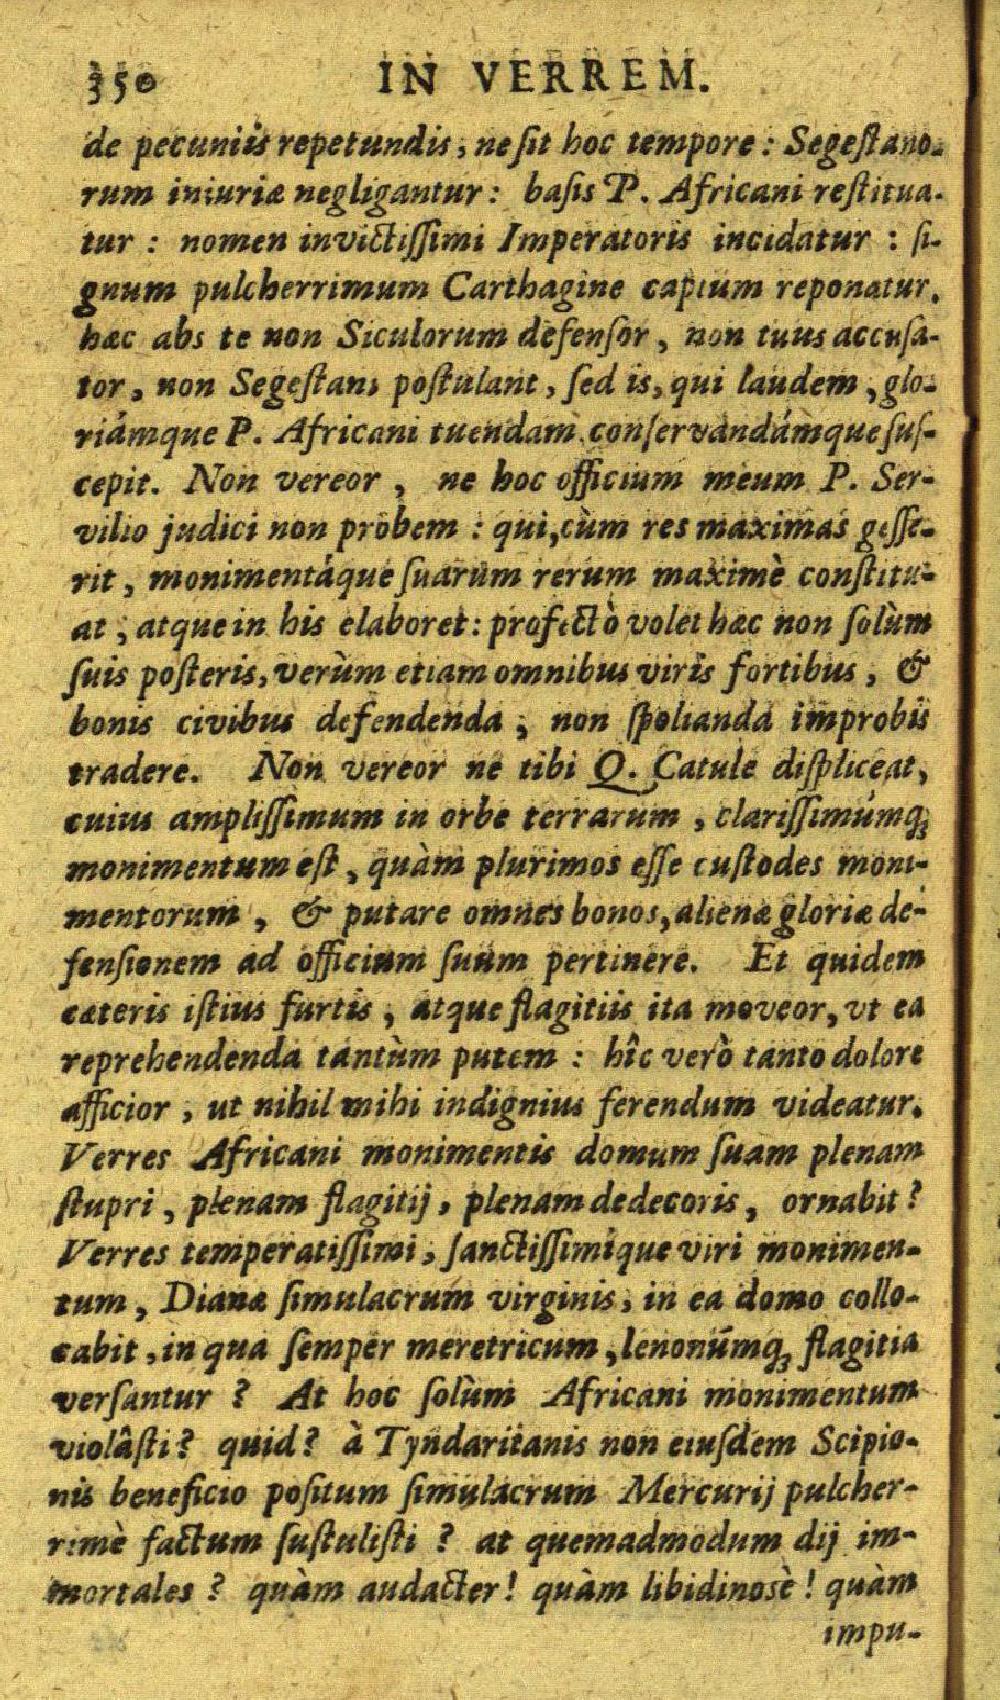 350 IN VERREM.
de pecuniis repetundis, ne sit hoc tempore: Segestano-
rum iniuriæ negligantur: basis P. Africani restitua-
tur: nomen invictissimi Imperatoris incidatur: si-
gnum pulcherrimum Carthagine captum reponatur.
hæc abs te non Siculorum defensor, non tuus accusa-
tor, non Segestani postulant, sed is, qui laudem, glo-
riámque P. Africani tuendam conservandámque sus-
cepit. Non vereor, ne hoc officium meum P. Ser-
vilio judici non probem: qui, cùm res maximas gesse-
rit, monimentáque suarum rerum maximè constitu-
at, atque in his elaboret: profectò volet hæc non solùm
suis posteris, verùm etiam omnibus viris fortibus, &
bonis civibus defendenda, non spolianda improbis
tradere. Non vereor ne tibi Q. Catule displiceat,
cuius amplissimum in orbe terrarum, clarissimúmq;
monimentum est, quàm plurimos esse custodes moni-
mentorum, & putare omnes bonos, alienæ gloriæ de-
fensionem ad officium suum pertinere. Et quidem
cæteris istius furtis, atque flagitiis ita moveor, vt ea
reprehendenda tantùm putem: hîc verò tanto dolore
afficior, ut nihil mihi indignius ferendum videatur.
Verres Africani monimentis domum suam plenam
stupri, plenam flagitij, plenam dedecoris, ornabit?
Verres temperatissimi, sanctissimíque viri monimen-
tum, Dianæ simulacrum virginis, in ea domo collo-
cabit, in qua semper meretricum, lenonúmq; flagitia
versantur? At hoc solùm Africani monimentum
violâsti? quid? à Tyndaritanis non eiusdem Scipio-
nis beneficio positum simulacrum Mercurij pulcher-
rimè factum sustulisti? at quemadmodum dij im-
mortales? quàm audacter! quàm libidinosè! quàm
impu-